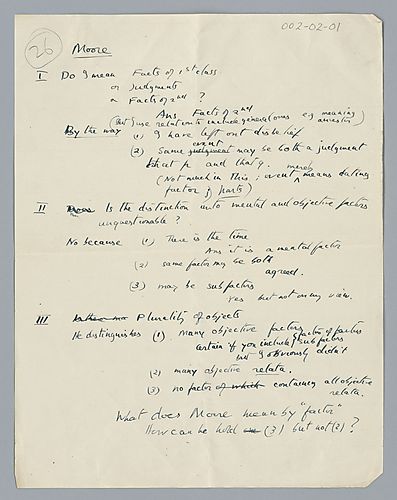 002-02-01
26
Moore
I Do I mean Facts of 1st class
or Judgments
or Facts of 2nd ?
Ans. Facts of 2nd
(But I use relation to include general ones e.g. meaning
ancestor)
By the way (1) I have left out disbelief
event
(2) Same judgment may be both a judgment
that p and that q.
merely
(Not much in this; event means dating
factor of parts)
II Does Is the distinction into mental and objective factors
unquestionable?
No because (1) There is the time
Ans it is a mental factor
(2) same factor may be both
agreed.
(3) may be subfactors
yes but not on my view.
III Plurality of objects
He distinguishes (1) many objective factors (factor of factors
certain if you include subfactors
but I obviously didn't
(2) many objective relata.
(3) no factor of which containing all objective
relata.
What does Moore mean by "factor"
How can he hold (3) but not (2)?